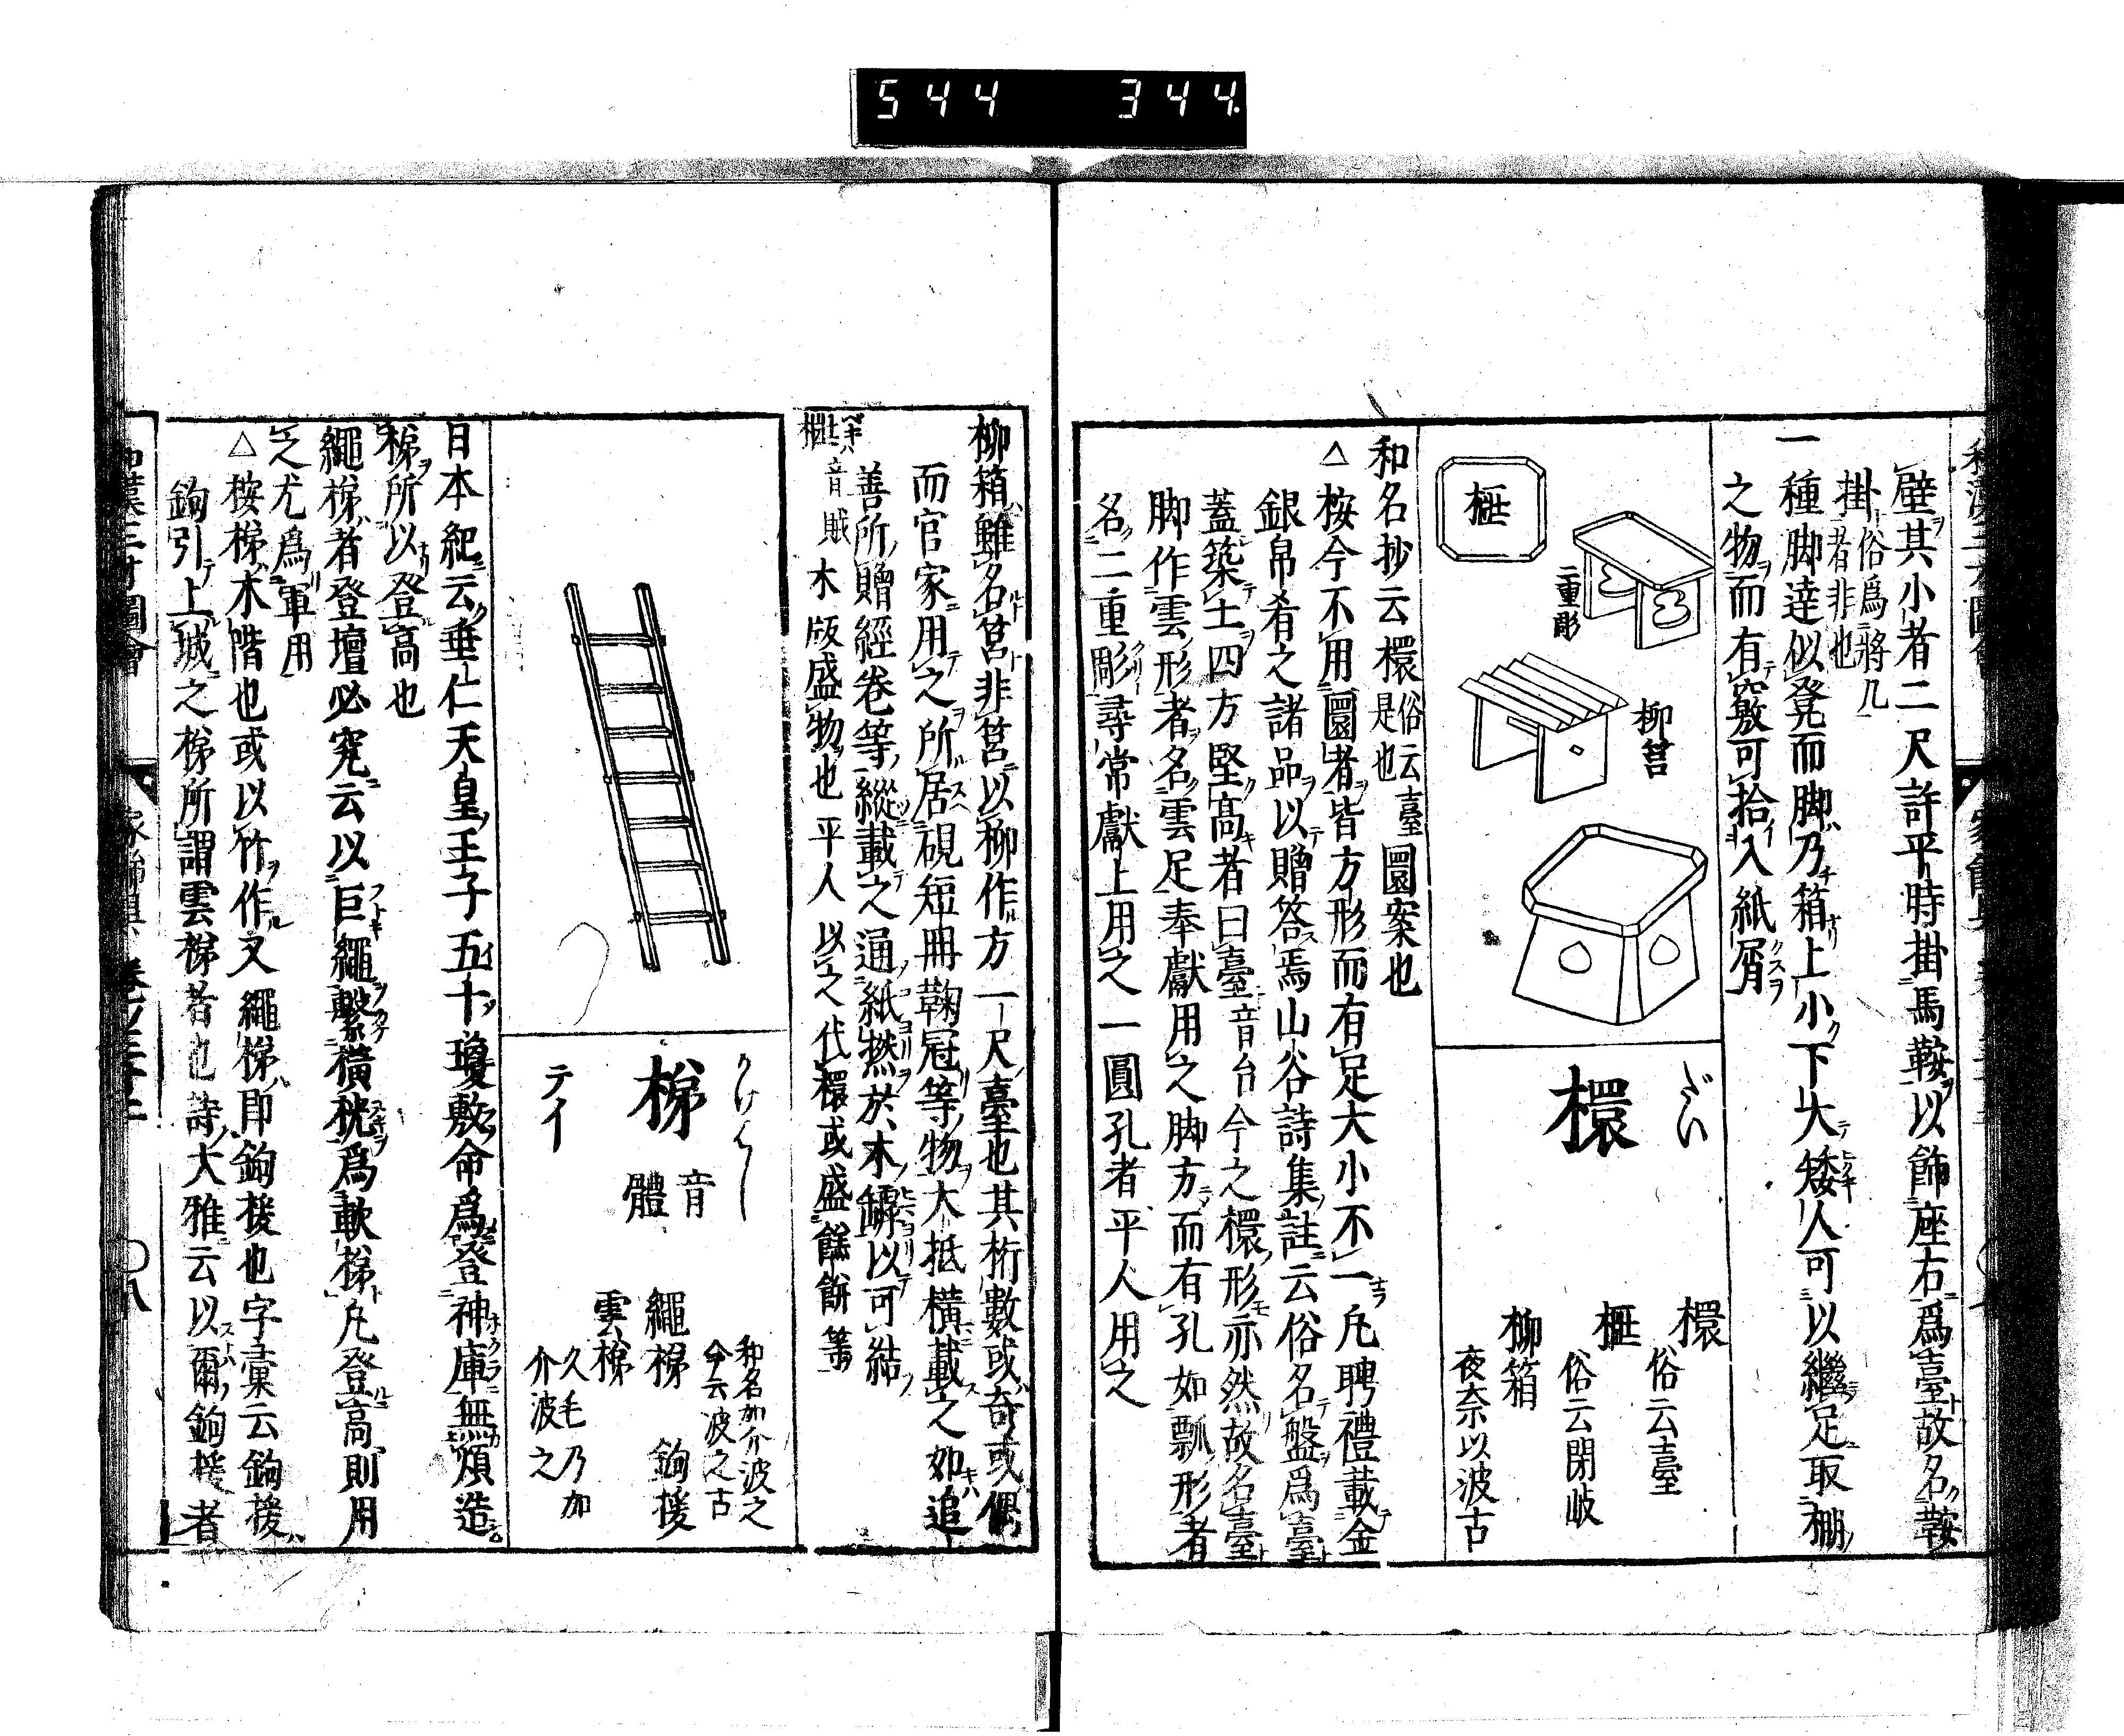 544 344
壁其小者二尺許平時掛馬鞍以飾座右爲臺故名鞍
掛俗爲將几者非也
一種脚達似凳而脚乃箱上小下大矮人可以繼足取棚
之物而有竅可拾入紙屑
榧
二重彫
柳筥
だい
檈
檈
俗云臺
榧
俗云閉岐
柳箱
夜奈以波古
和名抄云檈俗云臺是也圜案也
△按今不用圜者皆方形而有足大小不一凡聘禮載金
銀帛肴之諸品以贈答焉山谷詩集註云俗名盤爲臺
蓋築土四方堅高者曰臺音台今之檈形亦然故名臺
脚作雲形者名雲足奉獻用之脚方而有孔如瓢形者
名二重彫尋常獻上用之一圓孔者平人用之
柳箱雖名筥非筥以柳作方一尺臺也其桁數或奇或偶
而官家用之所居硯短冊鞠冠等物大抵橫載之如追
善所贈經卷等縱載之通紙撚於木罅以可結
榧音賦木版盛物也平人以之代檈或盛餻餅等
かけはし
梯
音體
テイ
和名加介波之
今云波之古
繩梯 鉤援
雲梯
久毛乃加介波之
日本紀云垂仁天皇王子五十瓊敷命爲登神庫無煩造
梯所以登高也
繩梯者登壇必究云以巨繩繫橫桄爲軟梯凡登高則用
之尤爲軍用
△按梯木階也或以竹作又繩梯即鉤援也字彙云鉤援
鉤引上城之梯所謂雲梯者也詩大雅云以爾鉤援者
和漢三才圖會
家飾具 卷之三十二
〇八